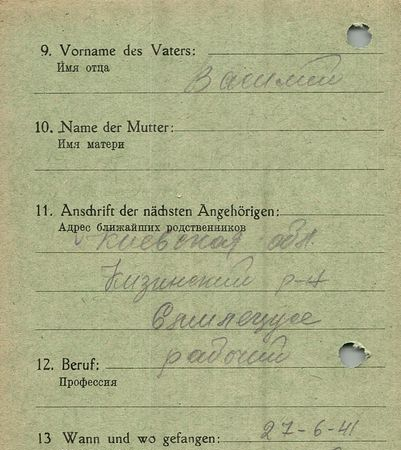 9. Vorname des Vaters:
Имя отца
Василий
10. Name der Mutter:
Имя матери
11. Anschrift der nächsten Angehörigen:
Адрес ближайших родственников
Киевская обл.
р-н
12. Beruf:
рабочий
Профессия
13 Wann und wo gefangen: 27-6-41